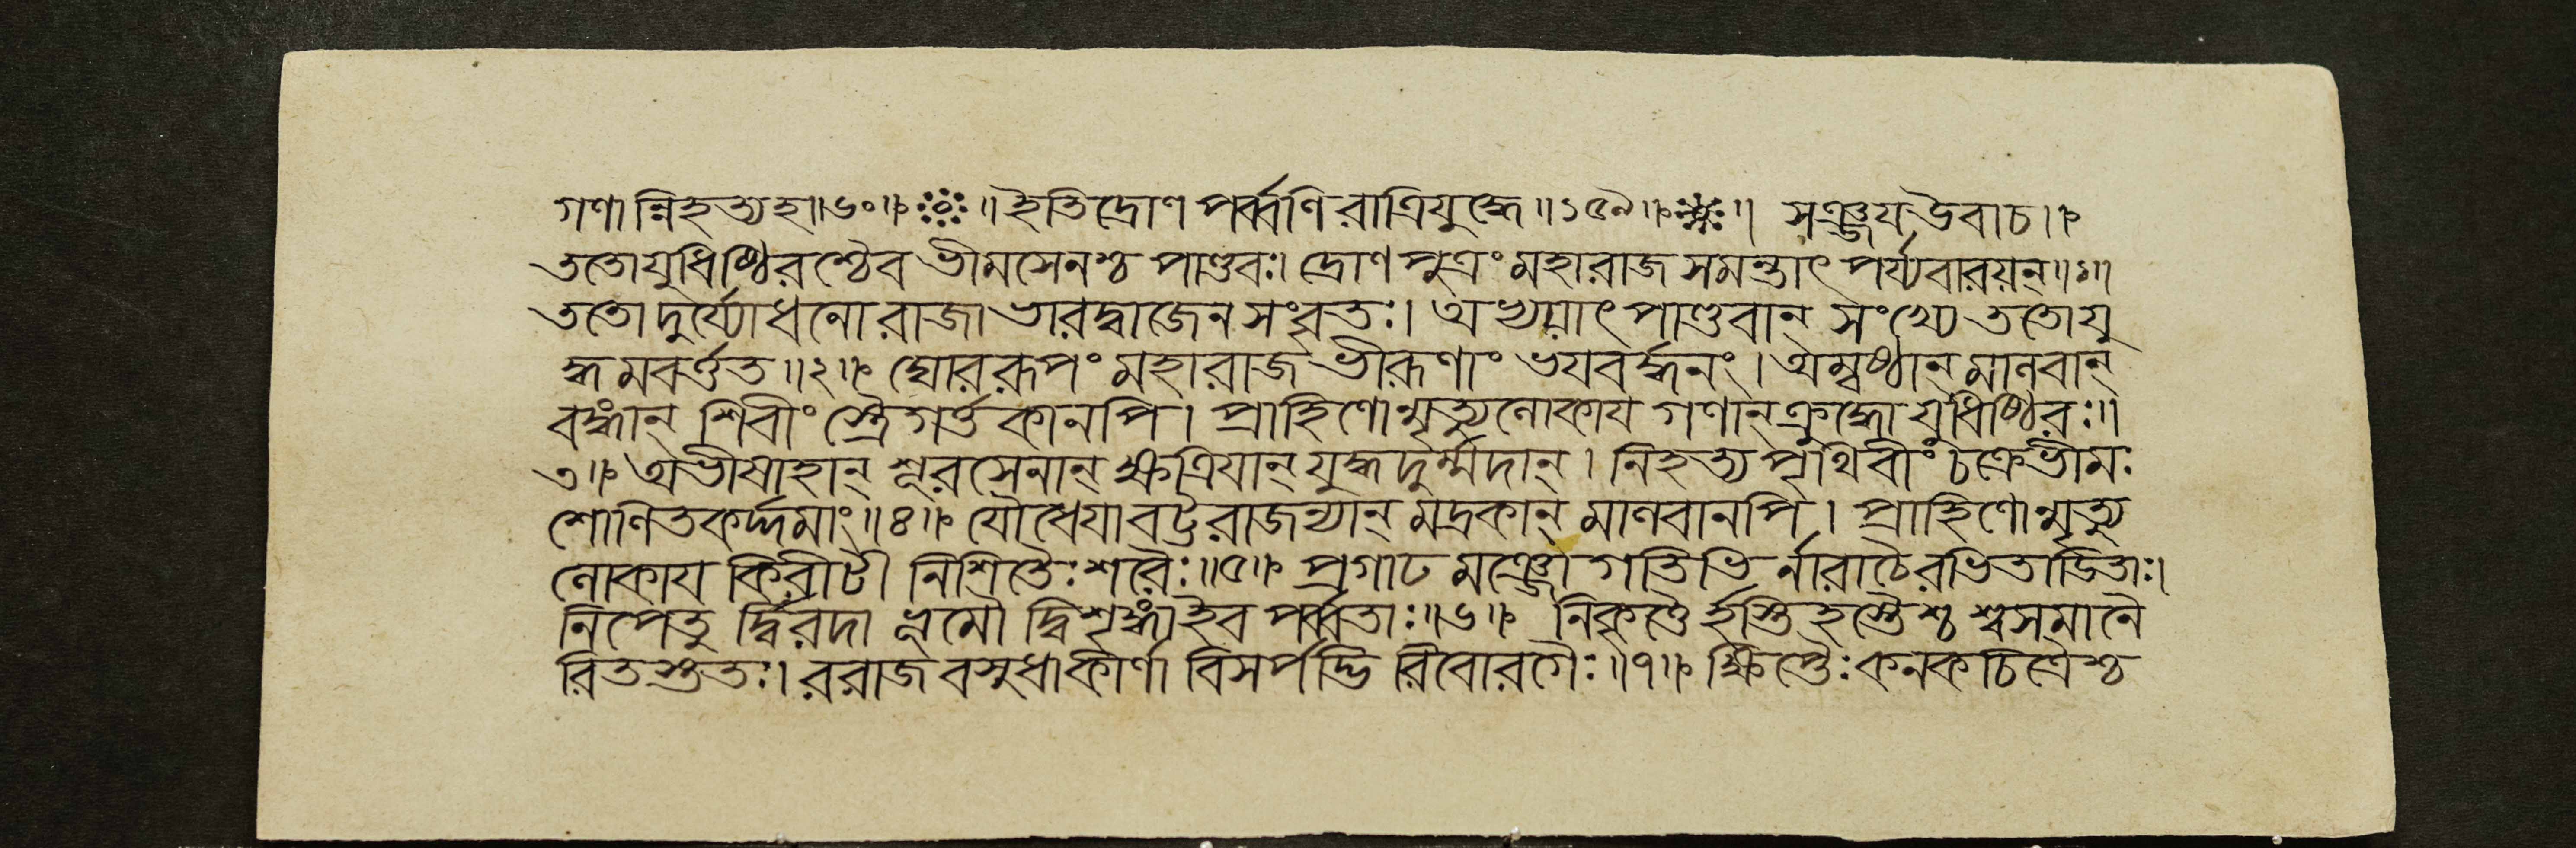 গণান্নিহত্যহ॥৬০॥ ॥ইতিদ্রোণপর্ব্বণিরাত্রিযুদ্ধে॥১৫৯॥ ॥ সঞ্জয়উবাচ॥
ততোযুধিষ্ঠিরশ্চৈবভীমসেনশ্চপাণ্ডবঃ।দ্রোণপুত্রংমহারাজসমন্তাৎপর্য্যবারয়ন্॥১॥
ততোদুর্য্যোধনোরাজাভারদ্বাজেনসংবৃতঃ।অভ্যয়াৎপাণ্ডবান্ সংখ্যেততোযু
দ্ধমবর্ত্তত॥২॥ ঘোররূপংমহারাজভীরূণাংভয়বর্দ্ধনং।অম্বষ্ঠান্মানবান্
বঙ্গান্ শিবীংস্ত্রৈগর্ত্তকানপি।প্রাহিণোন্মৃত্যুলোকায়গণান্ক্রুদ্ধোযুধিষ্ঠিরঃ॥
৩॥ অভীষাহান্ শূরসেনান্ ক্ষত্রিয়ান্ যুদ্ধদুর্ম্মদান্।নিহত্যপৃথিবীংচক্রেভীমঃ
শোণিতকর্দ্দমাং॥৪॥ যৌধেয়াবট্টরাজন্যান্ মদ্রকান্ মাণবানপি।প্রাহিণোন্মৃত্যু
লোকায়কিরীটী নিশিতৈঃশরৈঃ॥৫॥ প্রগাঢমঞ্জোগতিভির্নারাচৈরভিতাডিতাঃ।
নিপেতুর্দ্বিরদাভূমৌ দ্বিশৃঙ্গাইবপর্ব্বতাঃ॥৬॥ নিকৃত্তৈর্হস্তিহস্তৈশ্চশ্বসমানৈ
রিতস্ততঃ।ররাজবসুধাকীর্ণাবিসর্পদ্ভিরিবোরগৈঃ॥৭॥ ক্ষিপ্তৈঃকনকচিত্রৈশ্চ